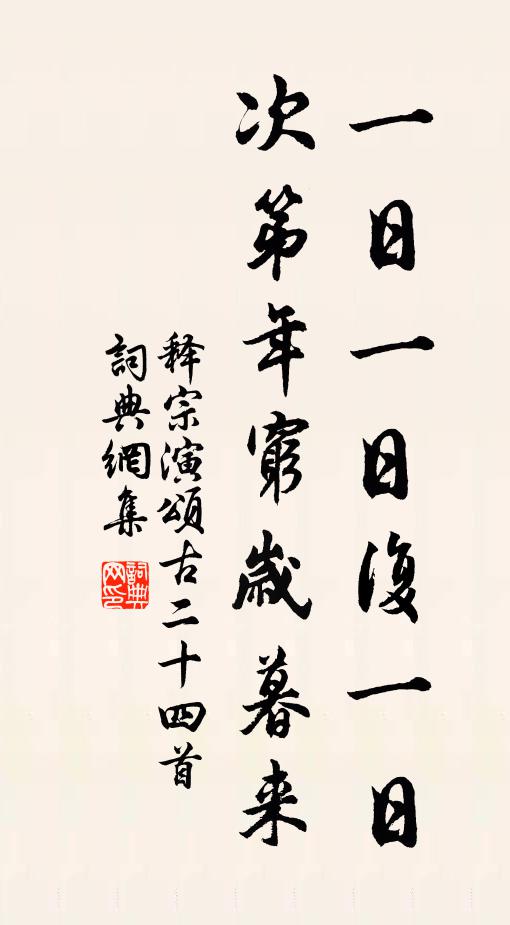 一日一日復一日
次第年窮歲暮来
释宗演頌古二十四首
詞典網集
詞典网印